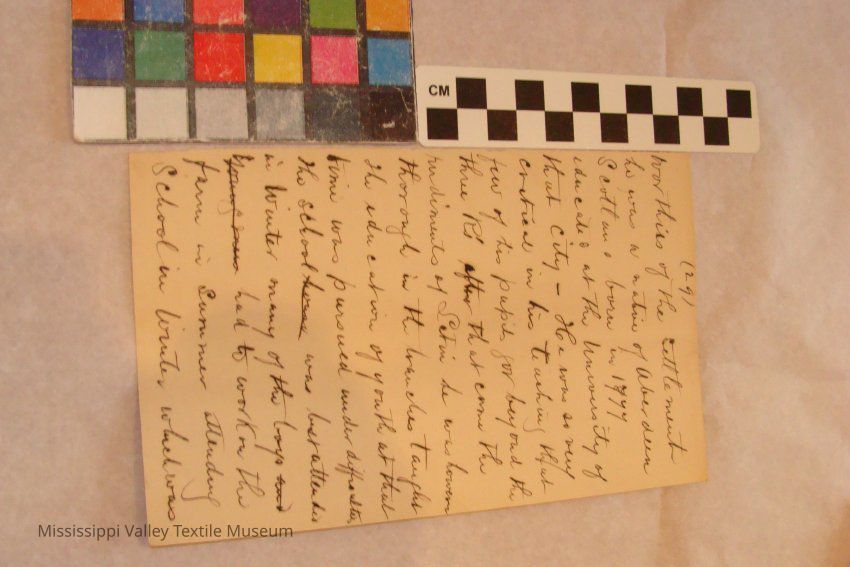 (29)
worthies of the settlement
he was a native of Aberdeen
Scotland born in 1777
educated at the University of
that City - He was so very
critical in his teaching that
few of his pupils got beyond the
three Rs after that came the
rudiments of Latin he was however
thorough in the branches taught
The education of youth at that
time was pursued under difficulties
the school house was best attended
in Winter many of the boys and
young men had to work on the
farm in Summer attending
School in Winter which was
CM
Mississippi Valley Textile Museum